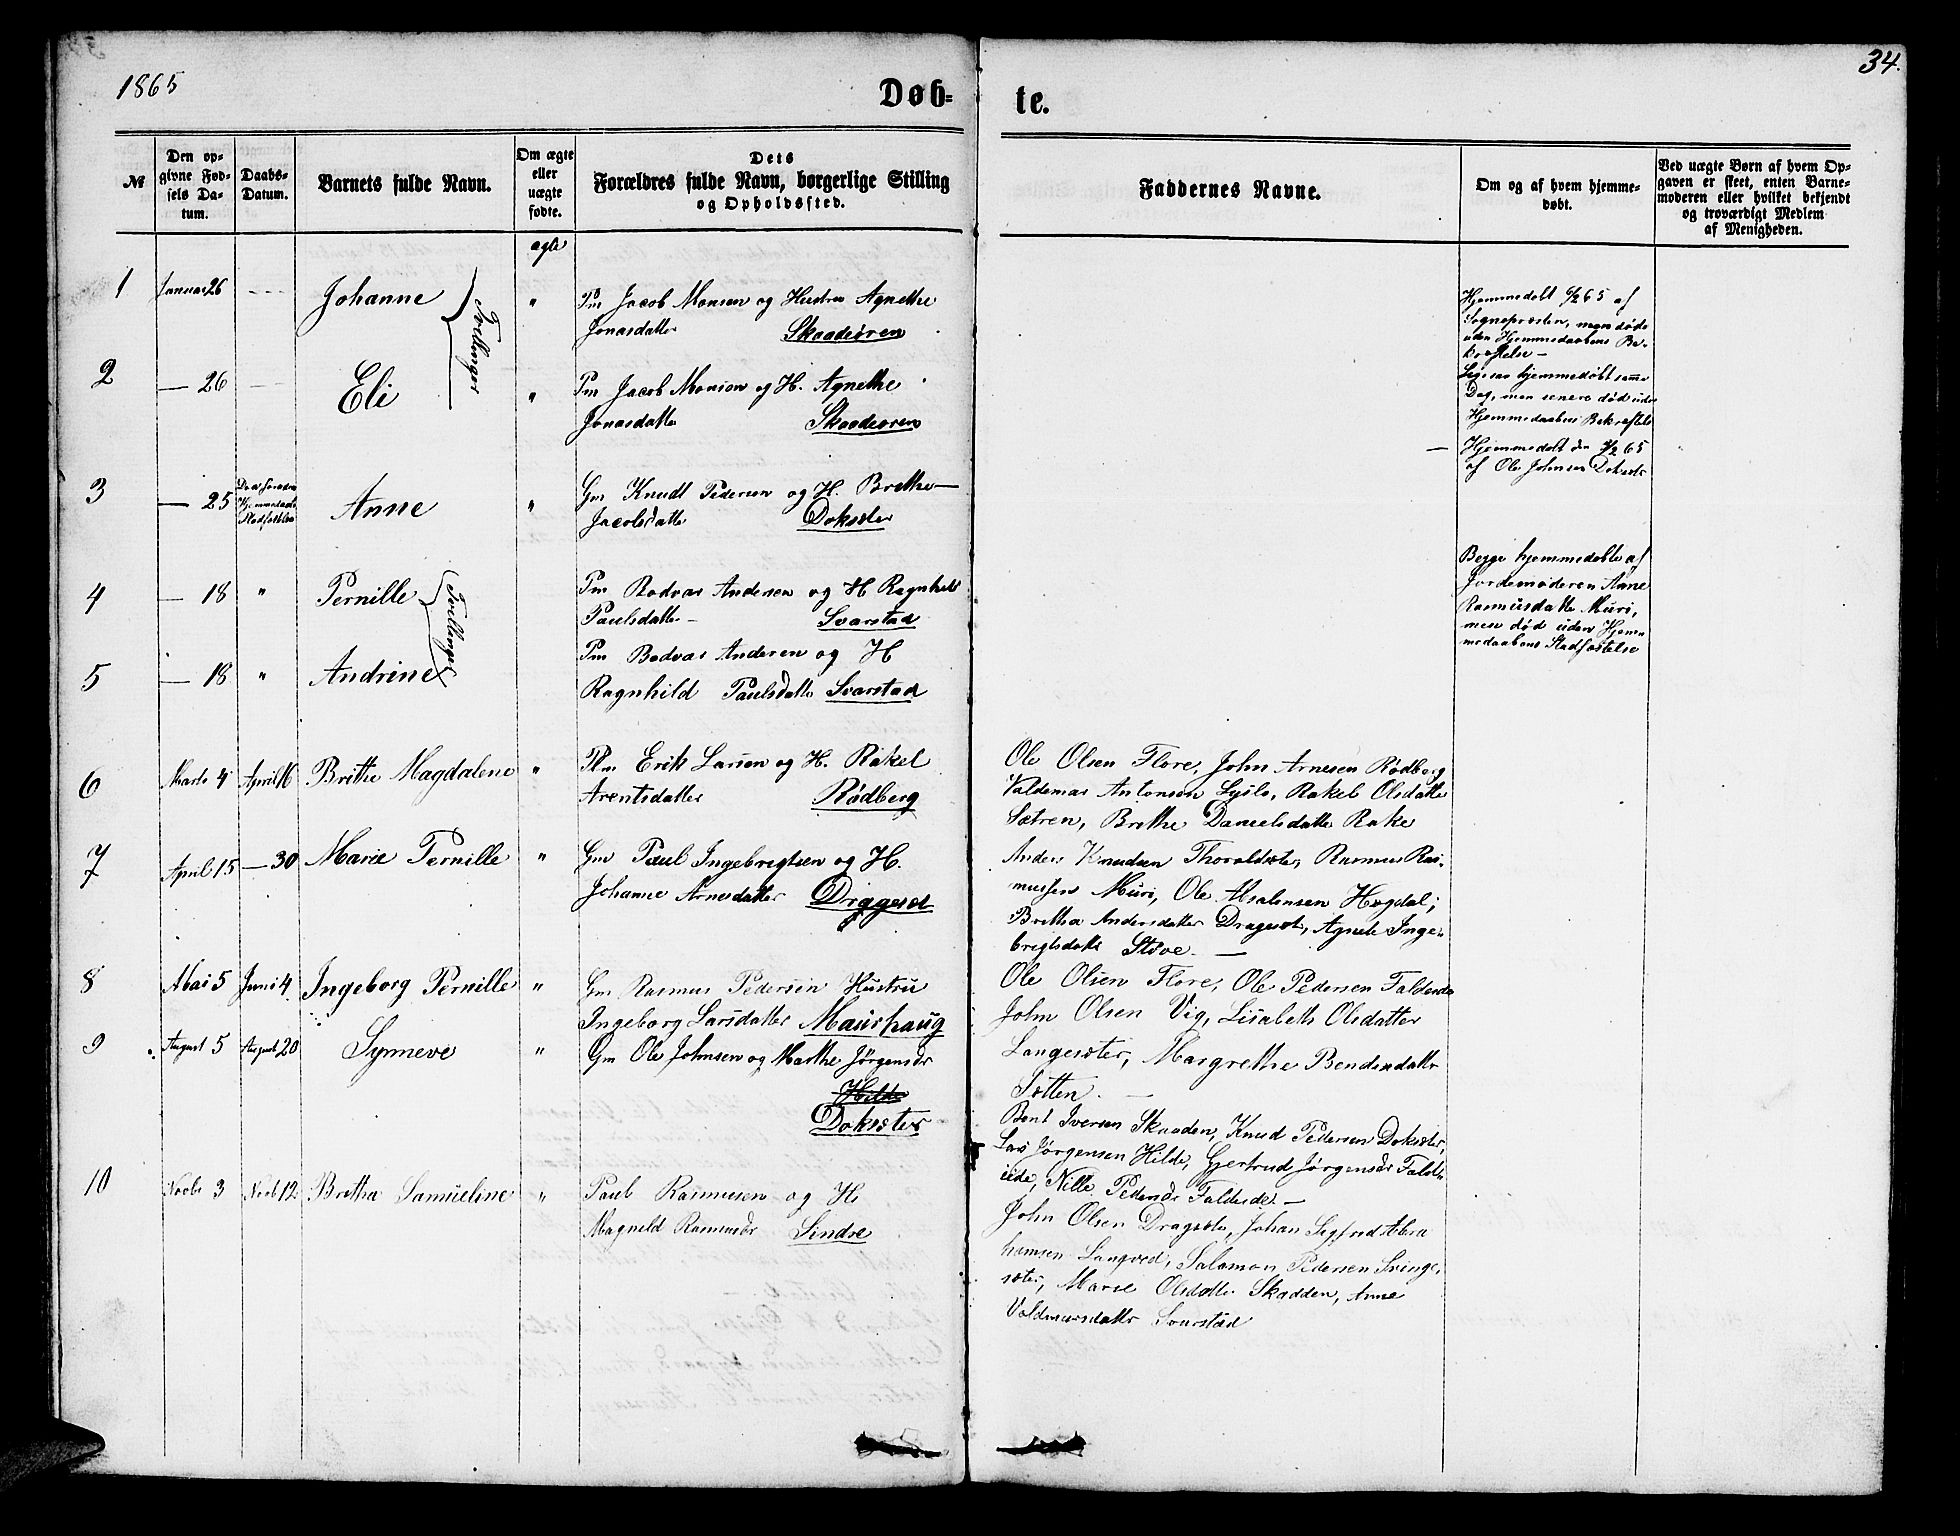 1865
Døb=
te.
34.
№
Den op-
givne Fød-
sels Da-
tum.
Daabs-
Datum.
Barnets fulde Navn.
Om ægte
eller
uægte
fødte.
Dets
Forældres fulde Navn, borgerlige Stilling
og Opholdssted.
Faddernes Navne.
Om og af hvem hjemme-
døbt.
Ved uægte Børn af hvem Op-
gaven er skeet, enten Barne-
moderen eller hvilket bekjendt
og troværdigt Medlem
af Menigheden.
ægte
1 Januar 26 --- Johanne " Pm Jacob Monsen og Hustru Agnethe
Jonasdatter Skaadøren
Tvillinger
Hjemmedøbt 6/2 65 af
Sognepræsten, men døde
uden Hjemmedaabens Be-
kræftelse —
2 — 26 — Eli " Pm Jacob Monsen og H. Agnethe
Jonasdatter Skaadøren
Ligesaa hjemmedøbt samme
Dag, men senere død uden
Hjemmedaabens Bekræftelse
3 — 25 Anne " Gm Knudt Pedersen og H. Brethe —
Jacobsdatter Doksæter
Hjemmedøbt den 1/2 65
af Ole Johnsen Doksæter
4 — 18 " Pernille Pm Bodvar Andersen og H Ragnhild
Paulsdatter — Svarstad
Tvillinger
Begge hjemmedøbte af
Jordemoderen Anne
Rasmusdatter Muri,
men død uden Hjem-
medaabens Stadfæstelse
5 — 18 " Andrine Pm Bodvar Andersen og H
Ragnhild Paulsdatter Svarstad
6 Marts 4 April 16 Brithe Magdalene " Plm Erik Larsen og H. Rakel
Arentsdatter Rødberg
Ole Olsen Flore, John Arnesen Rødberg
Valdemar Antonsen Lyslo, Rakel Olsdatter
Sætren, Brethe Danielsdatter Rake
7 April 15 — 30 Marie Pernille " Gm Paul Ingebregtsen og H.
Johanne Arnesdatter Draggeset
Anders Knudsen Thoraldsæter, Rasmus Ras-
mussen Muri, Ole Absalonsen Høgdal;
Bretha Andersdatter Dragesæt, Agnete Inge-
bregtsdatter Støve. —
8 Mai 5 Juni 4. Ingeborg Pernille " Gm Rasmus Pedersen Hustru
Ingeborg Larsdatter Maurhaug
Ole Olsen Flore, Ole Pedersen Faldeide
John Olsen Vig, Lisabeth Olsdatter
Langesæter, Margrethe Bendixdatter
Sætten. —
9 August 5 August 20 Synneve " Gm Ole Johnsen og Marthe Jørgensdr
Hilde
Doksæter
Bent Iversen Skaaden, Knud Pedersen Doksæter,
Lars Jørgensen Hilde, Gjertrud Jørgensdr Fald-
eide, Nille Pedersdr Faldeide —
10 Novbr 3 Novb 12 Bretha Samueline " Paul Rasmusen og H.
Magnild Rasmusdr Sindre
John Olsen Dragesæt, Johan Sigfrid Abra
hamsen Langved, Salamon Pedersen Svinge-
sæter, Marie Olsdatter Skadden, Anne
Valdemarsdatter Svarstad